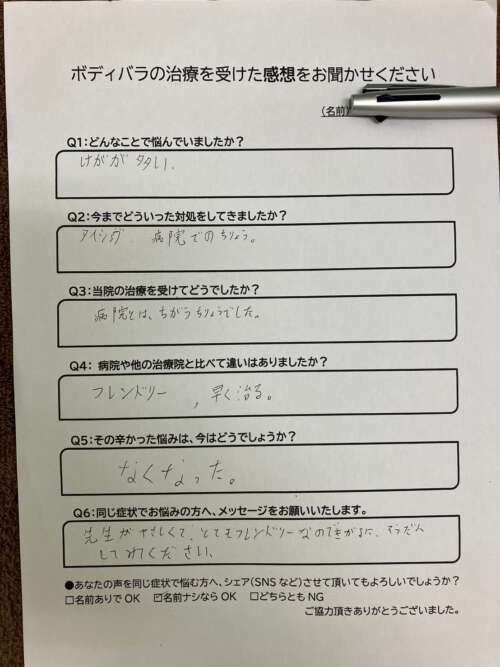 ボディバラの治療を受けた感想をお聞かせください
(名前)
Q1:どんなことで悩んでいましたか?
けがが多い.
Q2:今までどういった対処をしてきましたか?
アイシング. 病院でのちりょう。
Q3:当院の治療を受けてどうでしたか?
病院とは、ちがうちりょうでした。
Q4: 病院や他の治療院と比べて違いはありましたか?
フレンドリー , 早く治る。
Q5:その辛かった悩みは、今はどうでしょうか?
なくなった。
Q6:同じ症状でお悩みの方へ、メッセージをお願いいたします。
先生がやさしくて、とてもフレンドリーなのできがるに、そうだん
してみてください、
●あなたの声を同じ症状で悩む方へ、シェア(SNSなど)させて頂いてもよろしいでしょうか?
□名前ありでOK ☑名前ナシならOK □どちらともNG
ご協力頂きありがとうございました。